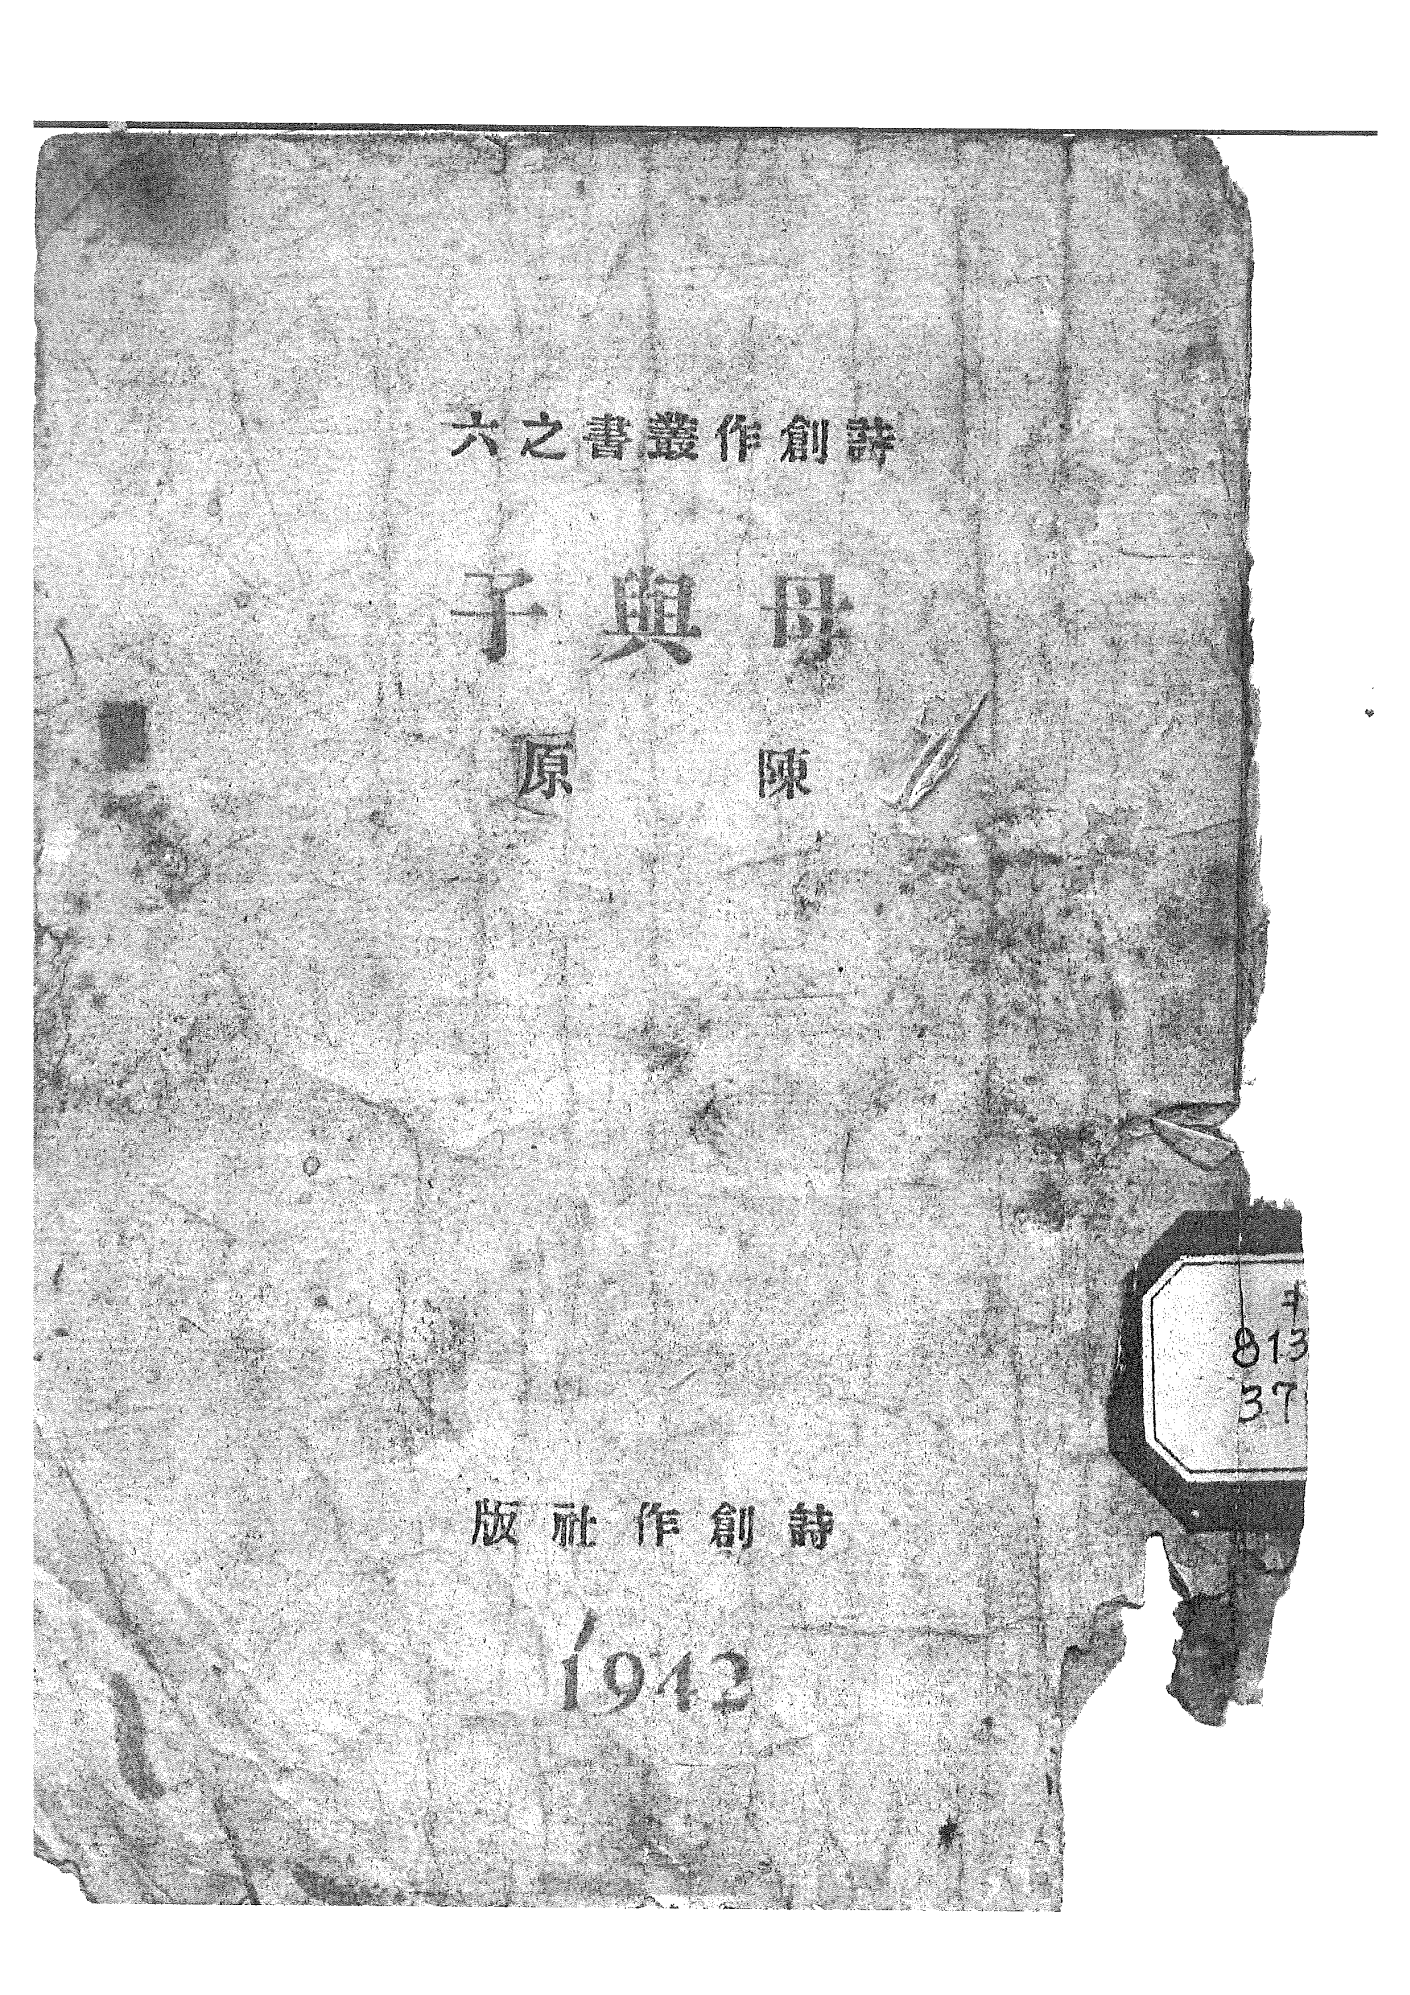 詩創作叢書之六
母與子
陳原
813
37
詩創作社版
1942